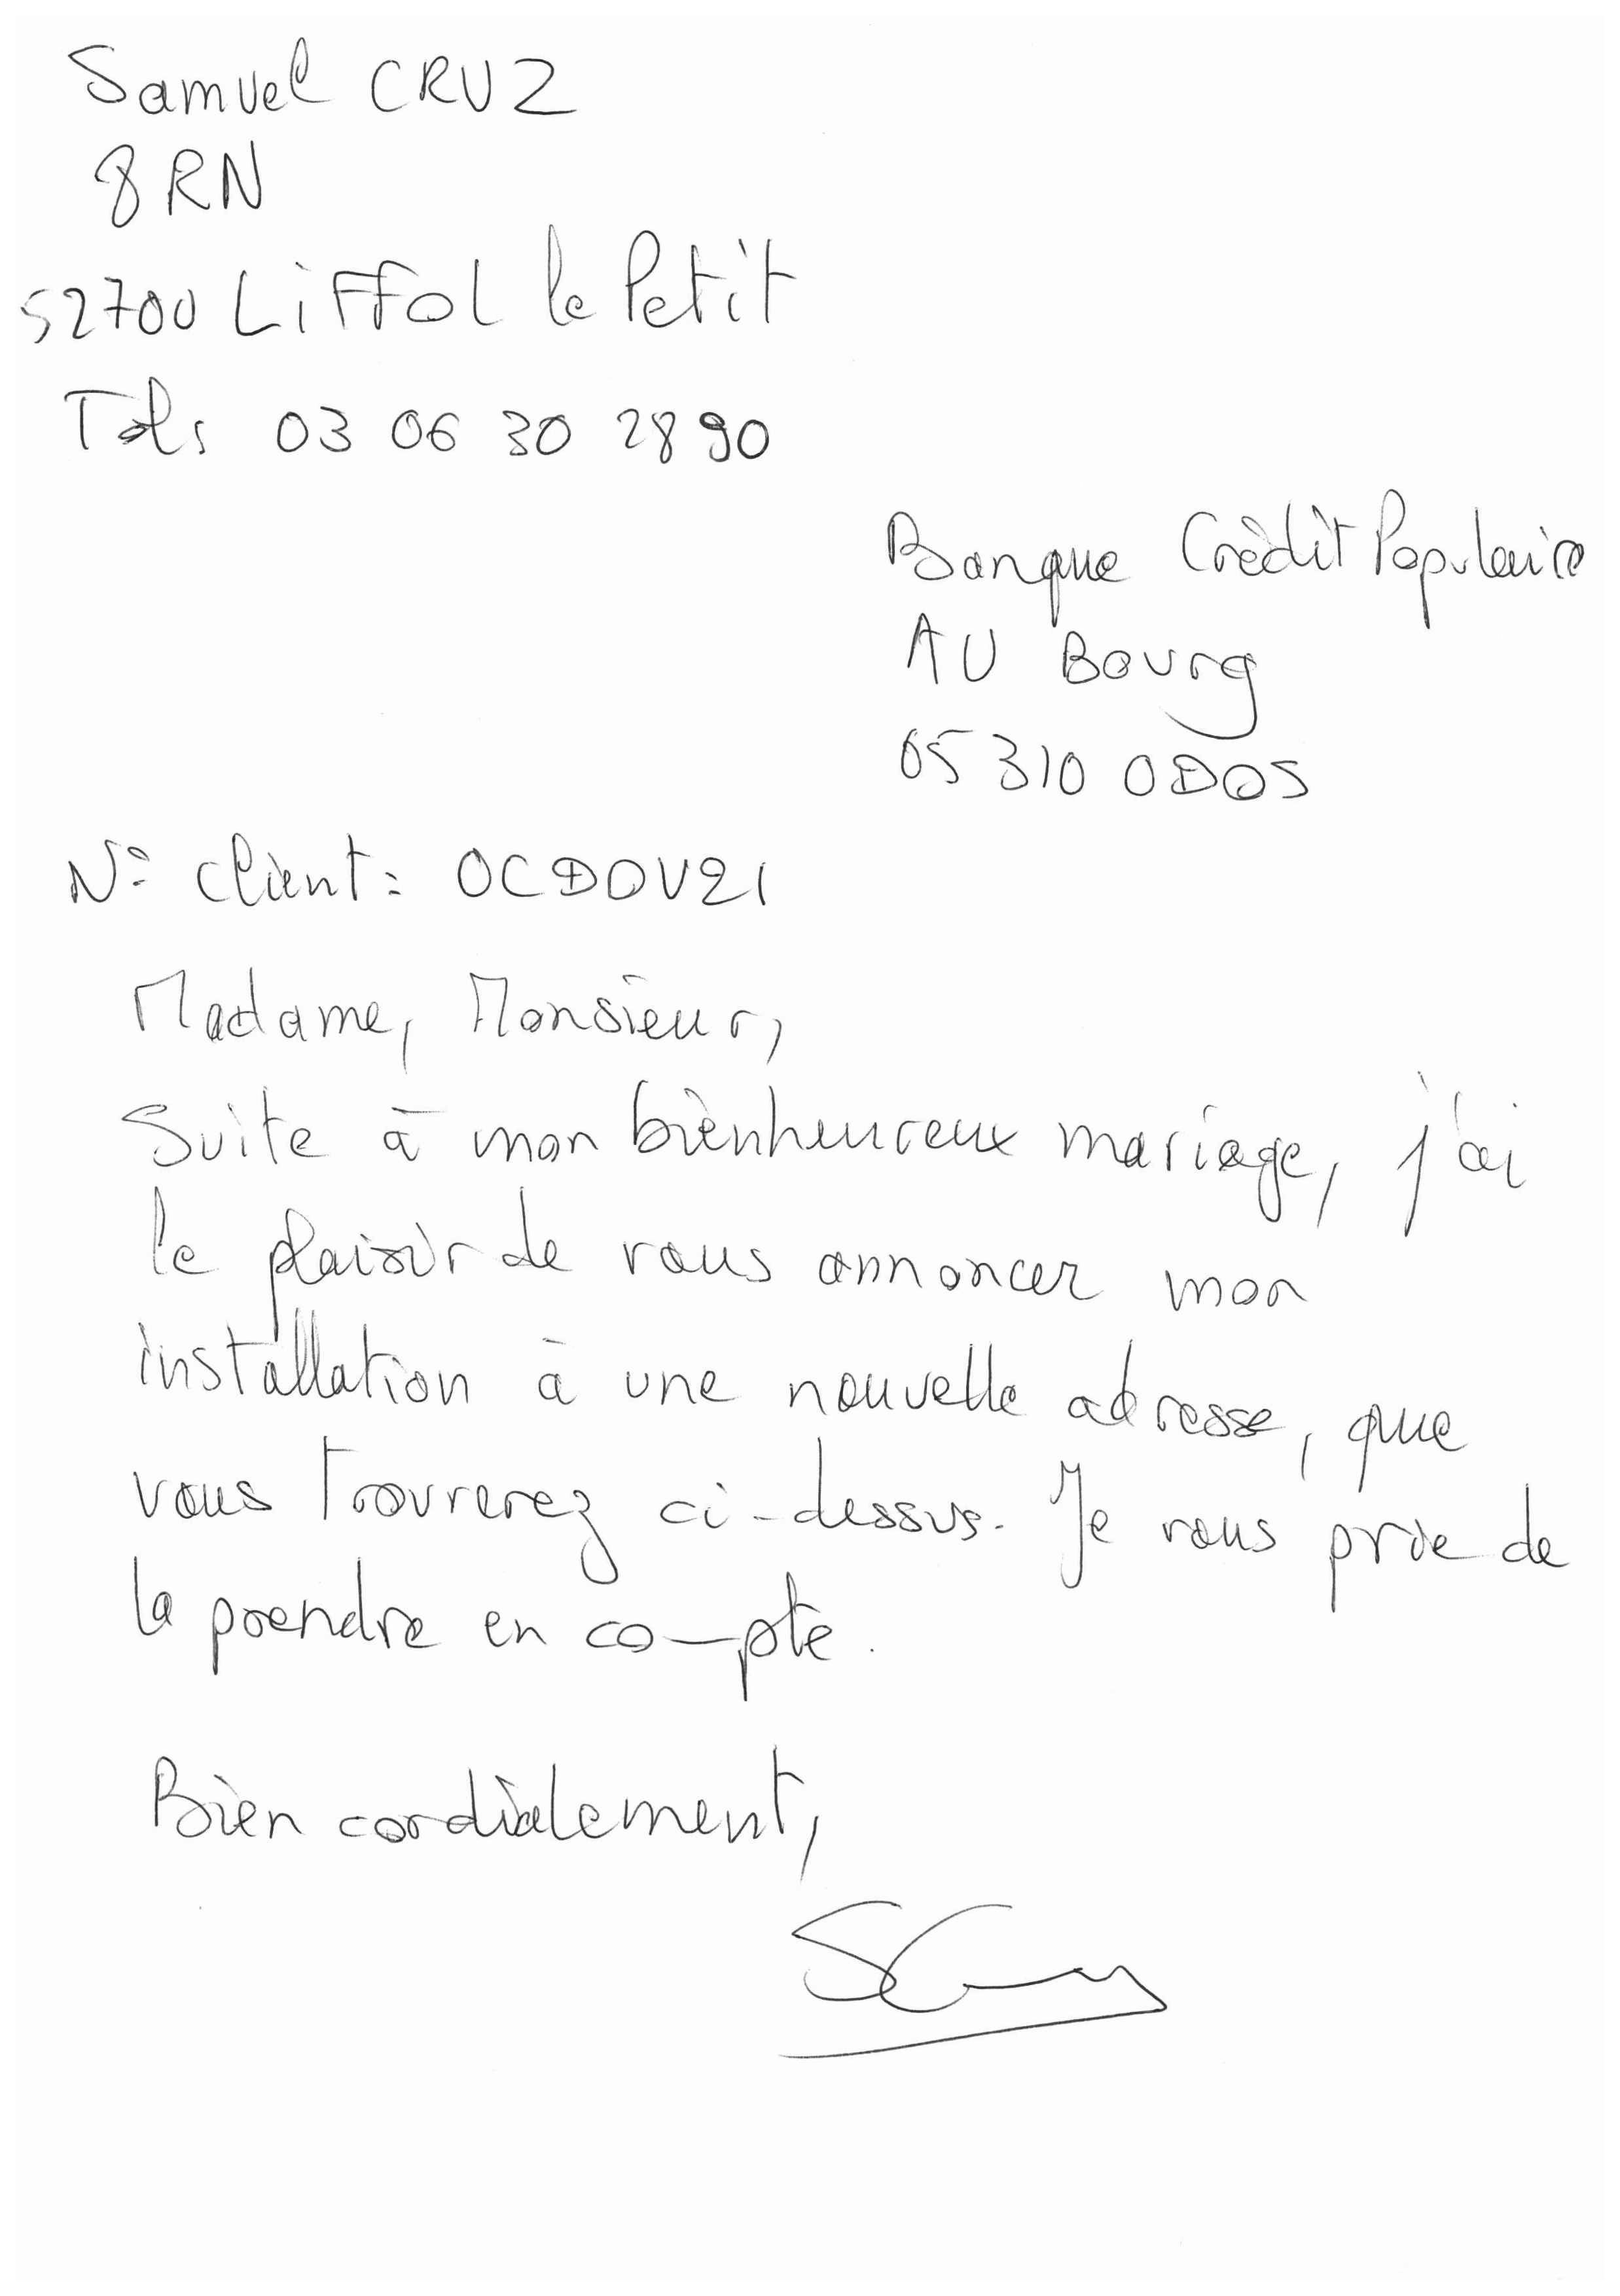 Samuel CRUZ
8 RN
52700 Liffol le Petit
Tel: 03 06 30 28 90
Banque Crédit Populaire
AU Bourg
65310 ODOS
N° client: OCDOV21
Madame, Monsieur,
Suite à mon bienheureux mariage, j'ai
le plaisir de vous annoncer mon
installation à une nouvelle adresse, que
vous trouverez ci-dessus. Je vous prie de
la prendre en compte.
Bien cordialement,